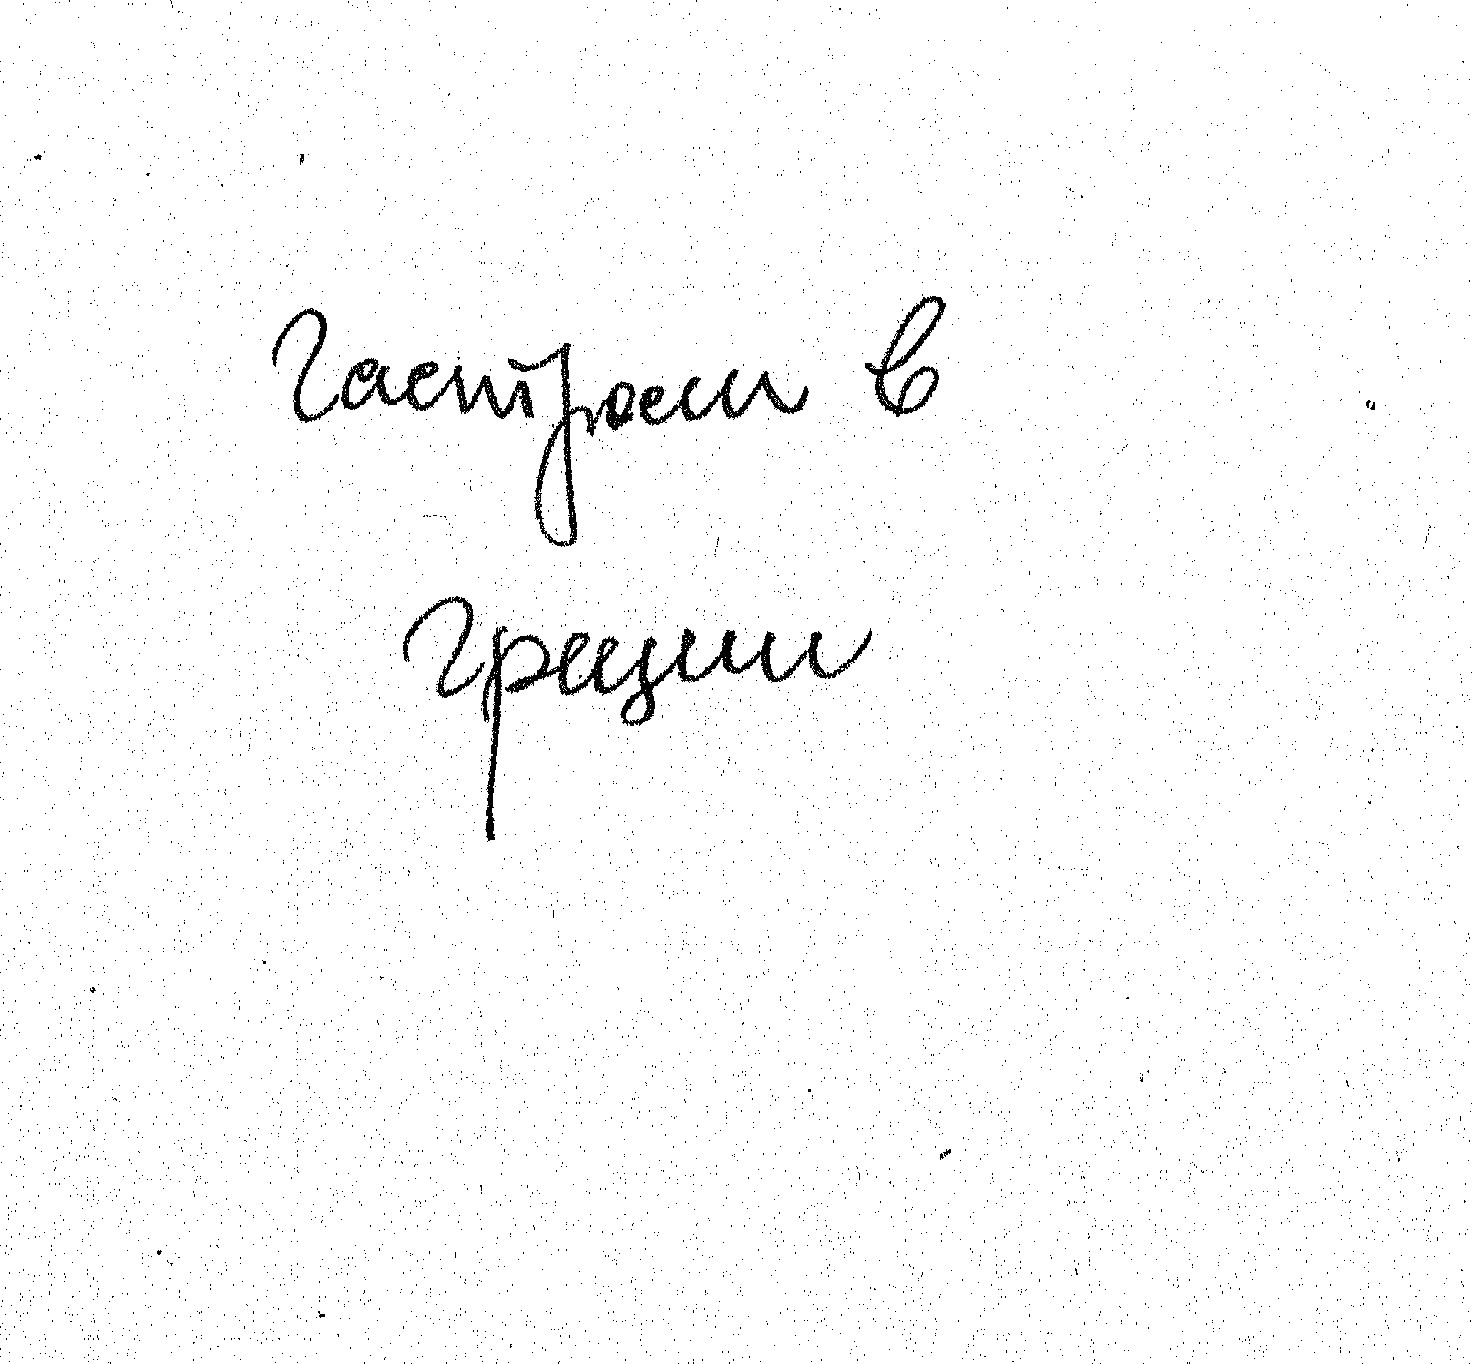 Гастроли в
Греции